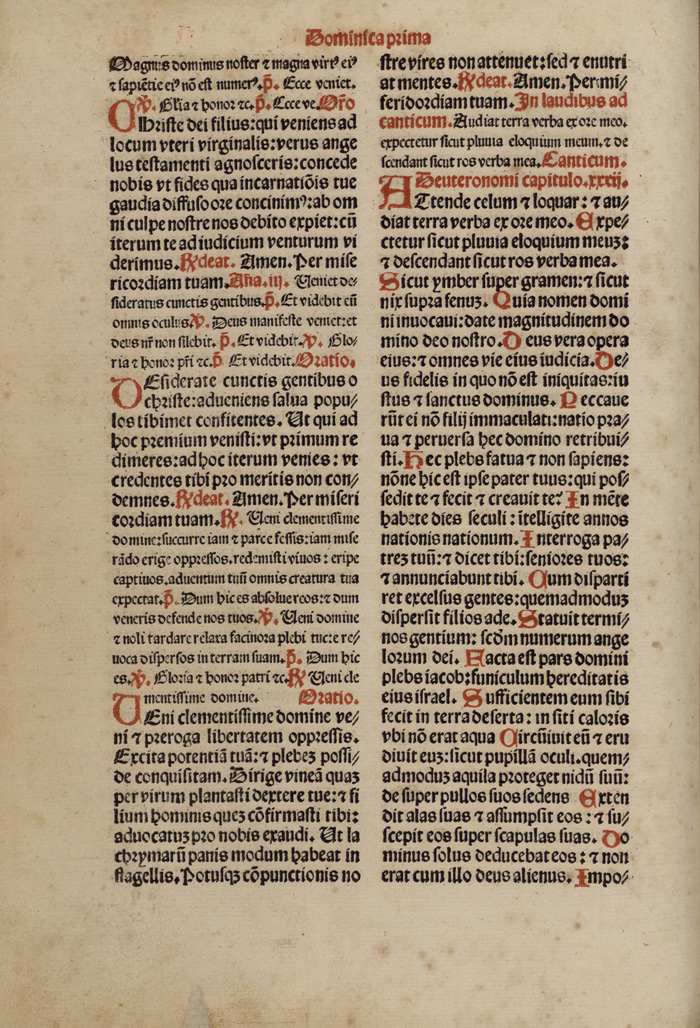 Dominica prima
Magnus dominus noster ⁊ magna virtꝰ eiꝰ
⁊ sapiẽtie eiꝰ nõ est numerꝰ. p̃. Ecce veniet.
v̷. Gl̃ia ⁊ honor ⁊c. p̃. Ecce ve. Or̃o
CHriste dei filius: qui veniens ad
locum vteri virginalis: verus ange
lus testamenti agnosceris: concede
nobis vt fides qua incarnatiõis tue
gaudia diffuso ore concinimꝰ: ab om
ni culpe nostre nos debito expiet: cũ
iterum te ad iudicium venturum vi
derimus. R̷deat. Amen. Per mise
ricordiam tuam. Aña. iij. Veniet de⸗
sideratus cunctis gentibus. p̃. Et videbit eũ
omnis oculus. v̷. Deus manifeste veniet: et
deus nr̃ non silebit. p̃. Et videbit. v̷. Glo⸗
ria ⁊ honor pr̃i ⁊c. p̃ Et videbit. Oratio.
DEsiderate cunctis gentibus o
christe: adueniens salua popu⸗
los tibimet confitentes. Ut qui ad
hoc premium venisti: vt primum re
dimeres: ad hoc iterum venies: vt
credentes tibi pro meritis non con⸗
demnes. R̷deat. Amen. Per miseri
cordiam tuam. R̷. Ueni clementissime
domine: succurre iam ⁊ parce fessis: iam mise
rãdo erige oppressos. redemisti viuos: eripe
captiuos. aduentum tuũ omnis creatura tua
expectat. p̃. Dum hic es absolue reos: ⁊ dum
veneris defende nos tuos. v̷. Ueni domine
⁊ noli tardare relaxa facinora plebi tue: ⁊ re⸗
uoca dispersos in terram suam. p̃. Dum hic
es. v̷. Gloria ⁊ honor patri ⁊c. R̷ Ueni cle
mentissime domine. Oratio.
UEni clementissime domine ve⸗
ni ⁊ preroga libertatem oppressis.
Excita potentiã tuã: ⁊ plebeꝫ possi⸗
de conquisitam. Dirige vineã quaꝫ
per virum plantasti dextere tue: ⁊ fi
lium hominis queꝫ cõfirmasti tibi:
aduocatuꝫ pro nobis exaudi. Ut la
chrymarũ panis modum habeat in
flagellis. Potusqꝫ cõpunctionis no
stre vires non attenuet: sed ⁊ enutri
at mentes. R̷deat. Amen. Per mi⸗
sericordiam tuam. In laudibus ad
canticum. Audiat terra verba ex ore meo.
expectetur sicut pluuia eloquium meum. ⁊ de
scendant sicut ros verba mea. Canticum.
Deuteronomi capitulo. xxxij.
ATtende celum ⁊ loquar: ⁊ au⸗
diat terra verba ex ore meo. Expe⸗
ctetur sicut pluuia eloquium meuꝫ:
⁊ descendant sicut ros verba mea.
Sicut ymber super gramen: ⁊ sicut
nix supra fenuꝫ. Quia nomen domi
ni inuocaui: date magnitudinem do
mino deo nostro. Deus vera opera
eius: ⁊ omnes vie eius iudicia. De⸗
us fidelis in quo nõ est iniquitas: iu
stus ⁊ sanctus dominus. Peccaue
rũt ei nõ filij immaculati: natio pra⸗
ua ⁊ peruersa hec domino retribui⸗
sti. Hec plebs fatua ⁊ non sapiens:
nõne hic est ipse pater tuus: qui pos⸗
sedit te ⁊ fecit ⁊ creauit te? In mẽte
habete dies seculi: ĩtelligite annos
nationis nationum. Interroga pa⸗
treꝫ tuũ: ⁊ dicet tibi: seniores tuos:
⁊ annunciabunt tibi. Cum disparti
ret excelsus gentes: quemadmoduꝫ
dispersit filios ade. Statuit termi⸗
nos gentium: scd̃m numerum ange
lorum dei. Facta est pars domini
plebs iacob: funiculum hereditatis
eius israel. Sufficientem eum sibi
fecit in terra deserta: in siti caloris
vbi nõ erat aqua Circũiuit eũ ⁊ eru
diuit euꝫ: sicut pupillã oculi. quem⸗
admoduꝫ aquila proteget nidũ suũ:
de super pullos suos sedens Exten
dit alas suas ⁊ assumpsit eos: ⁊ su⸗
scepit eos super scapulas suas. Do
minus solus deducebat eos: ⁊ non
erat cum illo deus alienus. Impo⸗